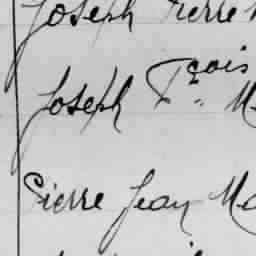 Joseph Pierre
Joseph Fçois
Pierre Jean